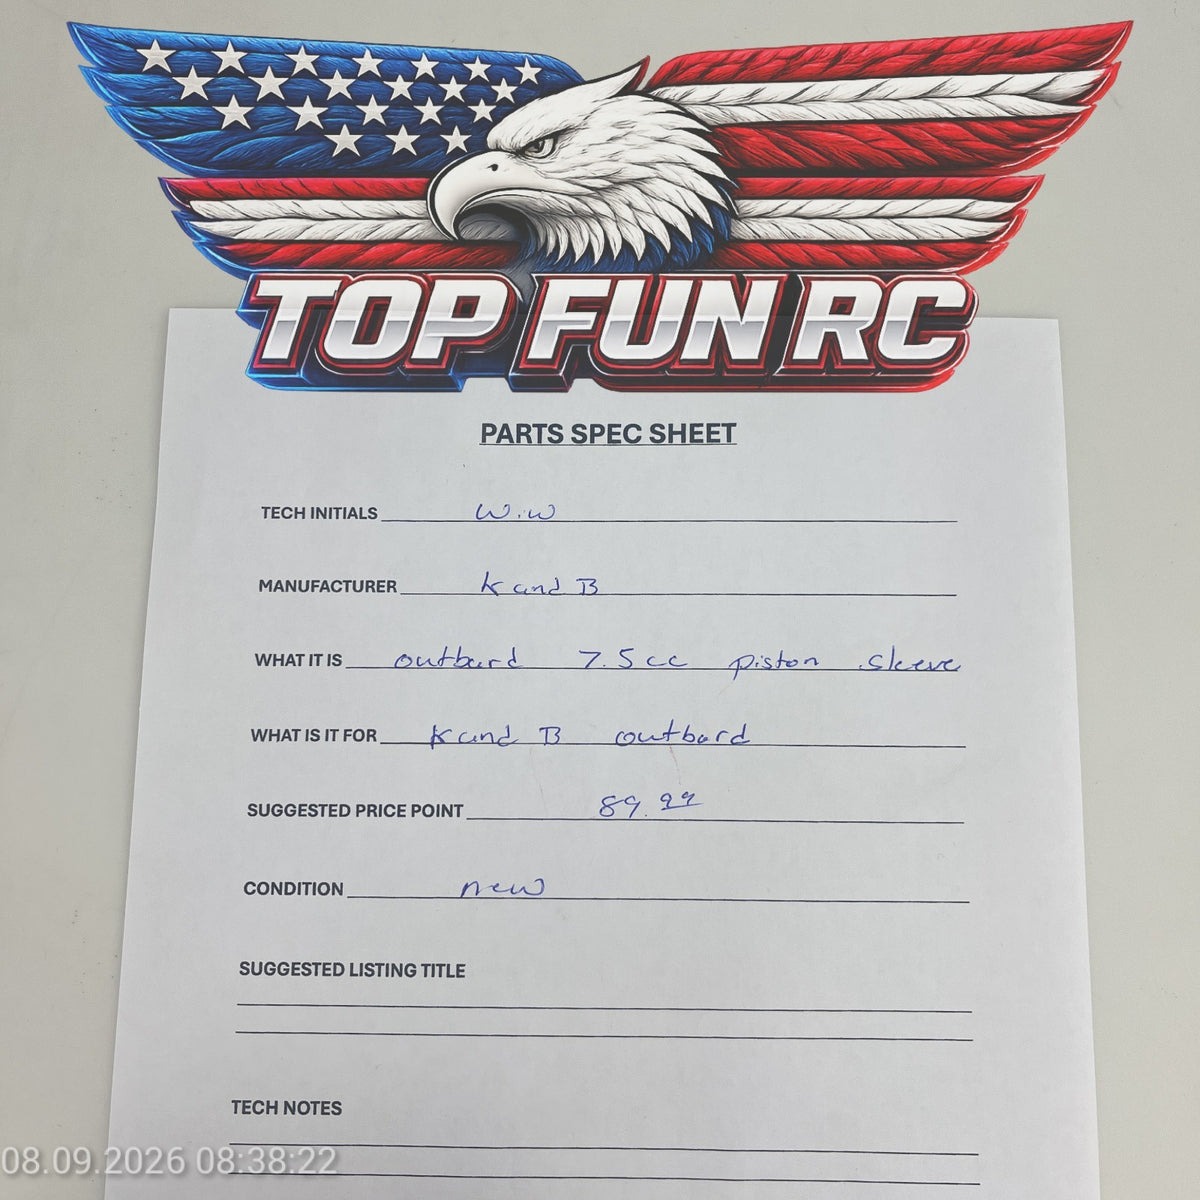 TOP FUN RC
PARTS SPEC SHEET
TECH INITIALS W.W
MANUFACTURER K and B
WHAT IT IS outbord 7.5cc piston sleeve
WHAT IS IT FOR K and B outbord
SUGGESTED PRICE POINT 89.99
CONDITION new
SUGGESTED LISTING TITLE
TECH NOTES
08.09.2026 08:38:22